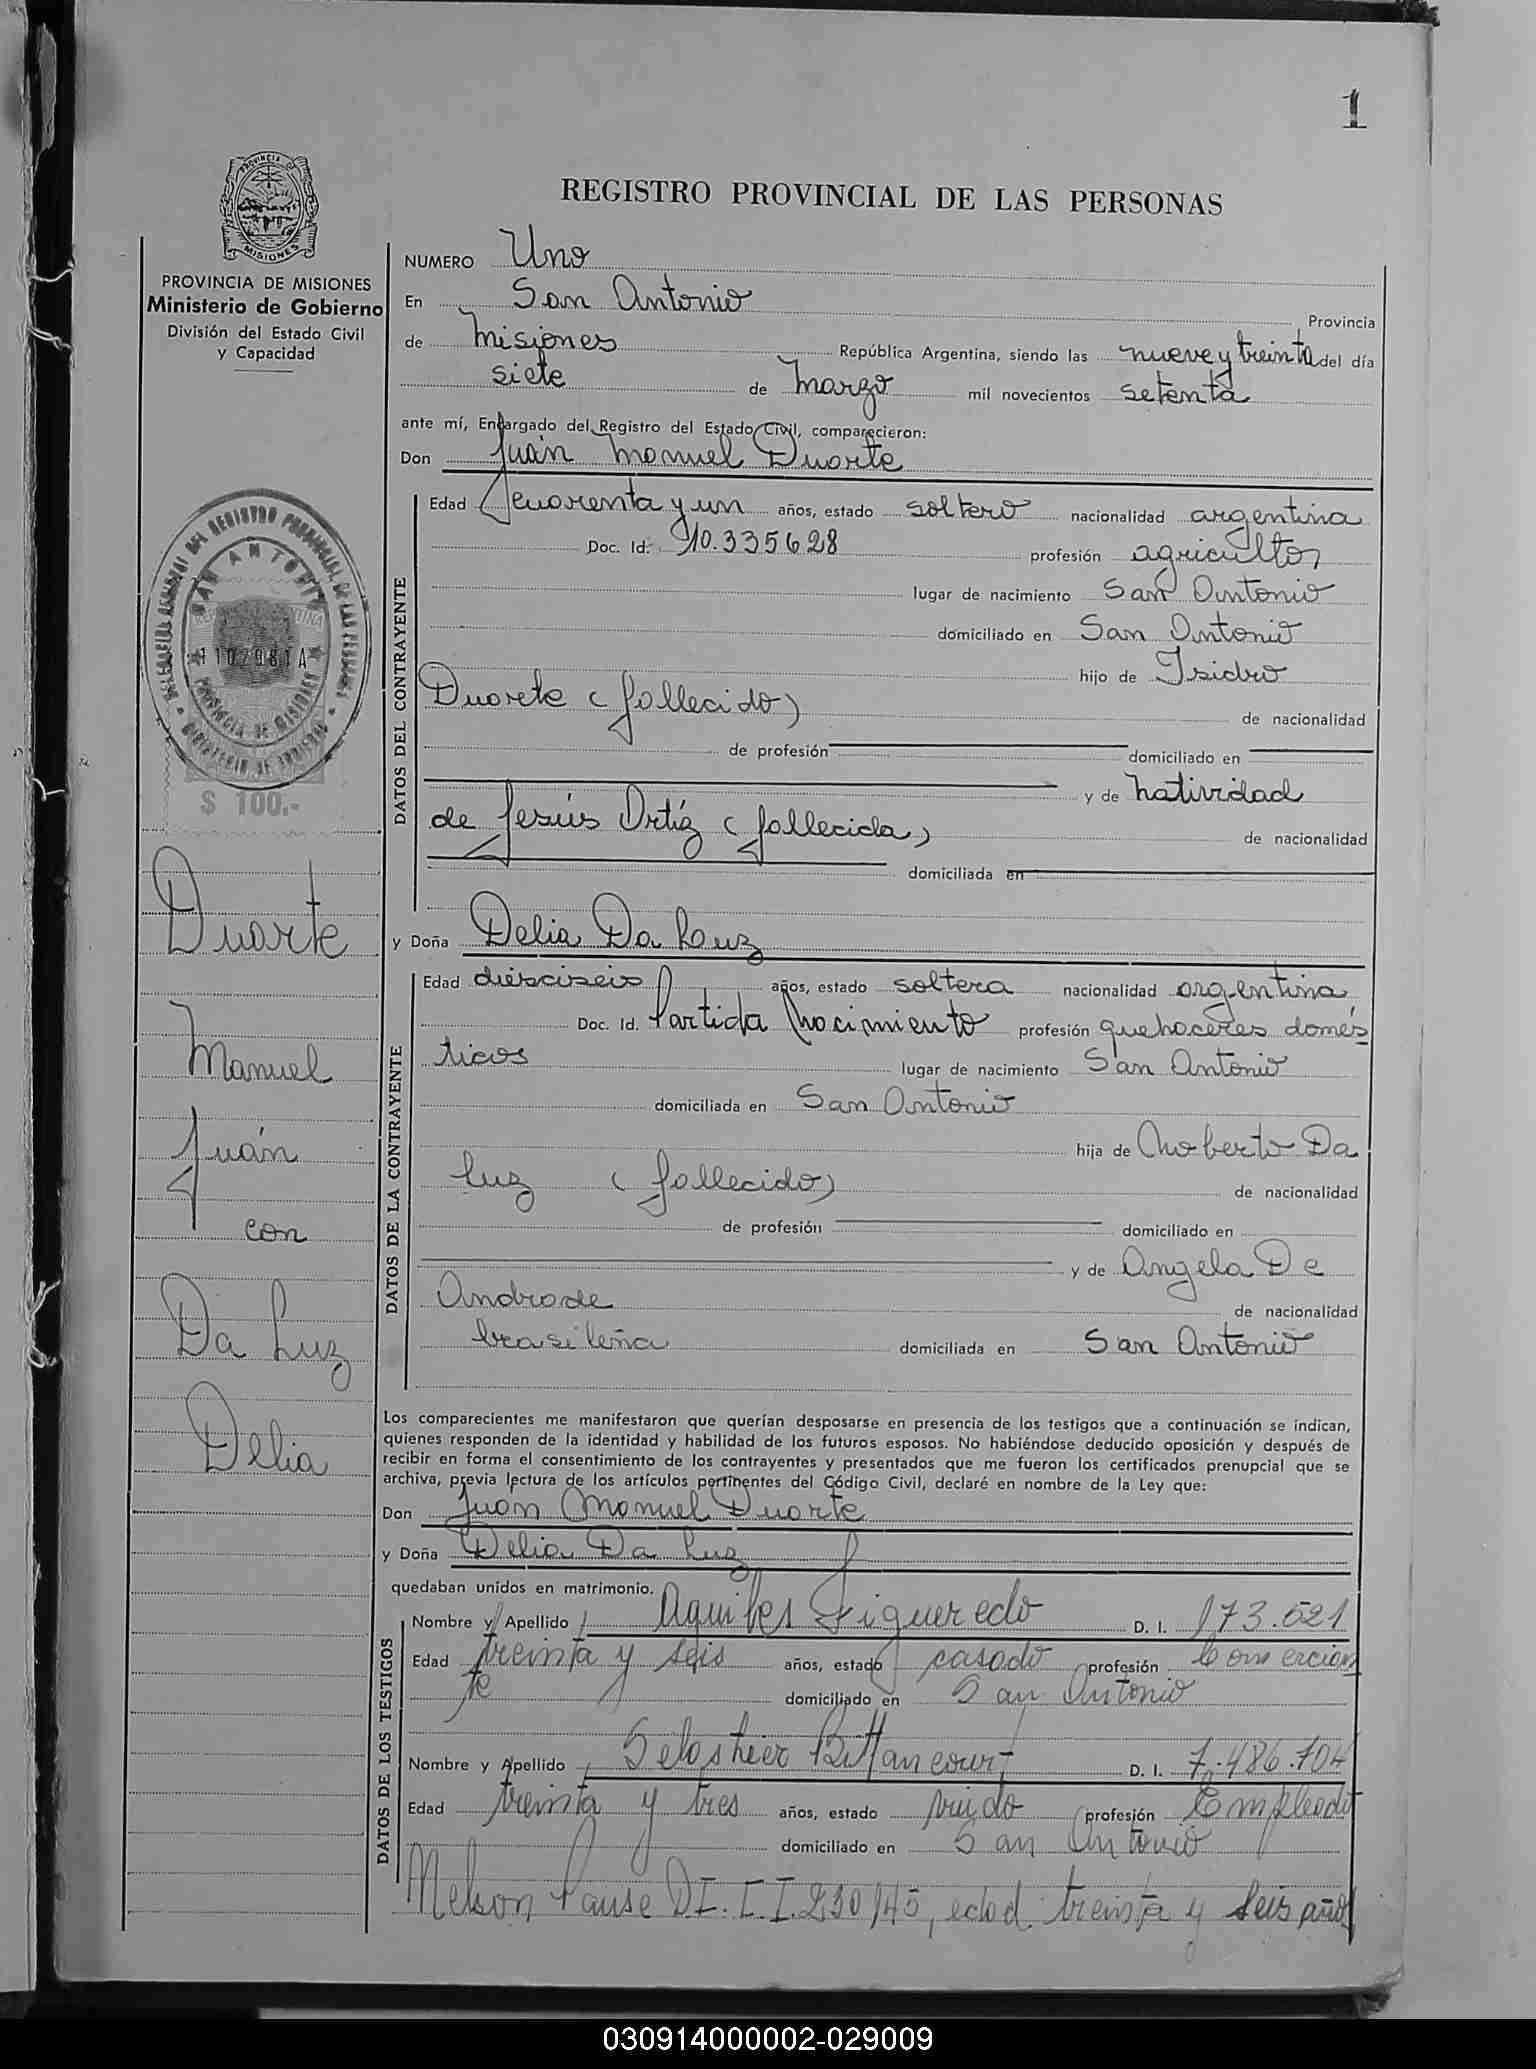 1
PROVINCIA DE
MISIONES
REGISTRO PROVINCIAL DE LAS PERSONAS
PROVINCIA DE MISIONES
Ministerio de Gobierno
División del Estado Civil
y Capacidad
NUMERO Uno
En San Antonio Provincia
de Misiones República Argentina, siendo las nueve y treinta del día
siete de Marzo mil novecientos setenta
ante mí, Encargado del Registro del Estado Civil, comparecieron:
Don Juán Manuel Duarte
DATOS DEL CONTRAYENTE
Edad cuarenta y un años, estado soltero nacionalidad argentina
Doc. Id. 10.335628 profesión agricultor
lugar de nacimiento San Antonio
domiciliado en San Antonio
hijo de Isidro
Duarte (fallecido) de nacionalidad
de profesión domiciliado en
y de Natividad
de Jesús Ortíz (fallecida) de nacionalidad
domiciliada en
SAN ANTONIO
PROVINCIA DE MISIONES
$ 100.-
Duarte
Manuel
Juán
con
Da Luz
Delia
y Doña Delia Da Luz
DATOS DE LA CONTRAYENTE
Edad dieciseis años, estado soltera nacionalidad argentina
Doc. Id. Partida Nacimiento profesión quehaceres domés
ticos lugar de nacimiento San Antonio
domiciliada en San Antonio
hija de Noberto Da
Luz (fallecido) de nacionalidad
de profesión domiciliado en
y de Angela De
Andrade de nacionalidad
brasileña domiciliada en San Antonio
Los comparecientes me manifestaron que querían desposarse en presencia de los testigos que a continuación se indican,
quienes responden de la identidad y habilidad de los futuros esposos. No habiéndose deducido oposición y después de
recibir en forma el consentimiento de los contrayentes y presentados que me fueron los certificados prenupcial que se
archiva, previa lectura de los artículos pertinentes del Código Civil, declaré en nombre de la Ley que:
Don Juan Manuel Duarte
y Doña Delia Da Luz
quedaban unidos en matrimonio.
DATOS DE LOS TESTIGOS
Nombre y Apellido Aquiles Figueredo D. I. 173.521
Edad treinta y seis años, estado casado profesión Comercian
te domiciliado en San Antonio
Nombre y Apellido Bittancourt D. I. 7.486.704
Edad treinta y tres años, estado viudo profesión Empleado
domiciliado en San Antonio
Nelson D.I. C.I. 230145, edad treinta y seis años
030914000002-029009